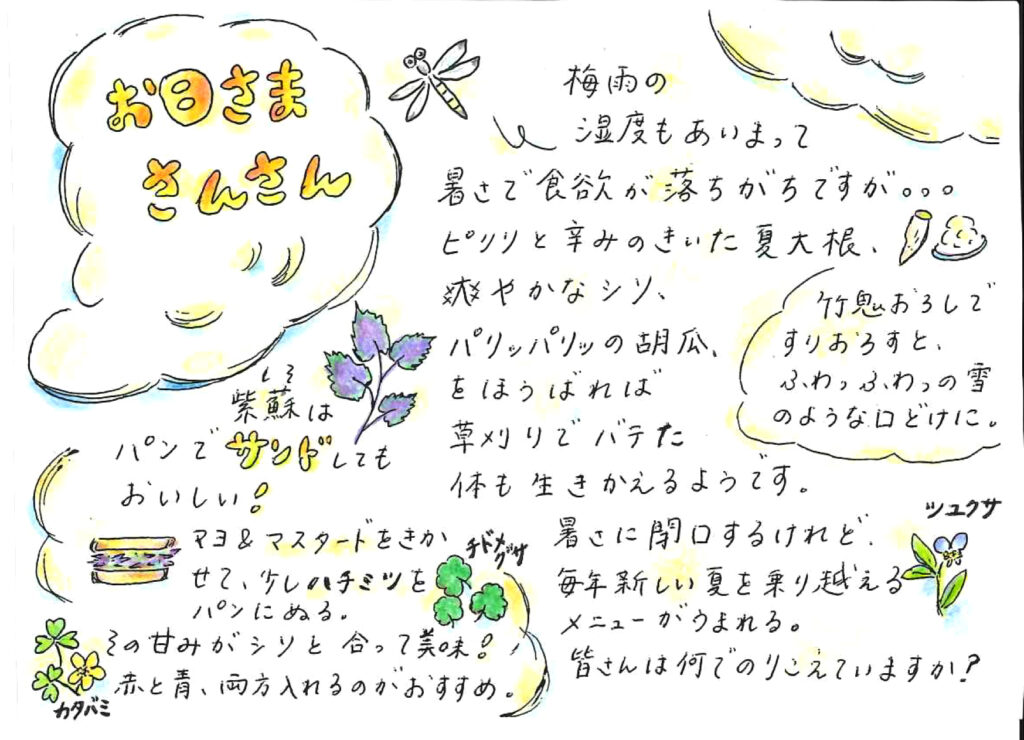 お日さま
さんさん
梅雨の
湿度もあいまって
暑さで食欲が落ちがちですが。。。
ピリリと辛みのきいた夏大根、
爽やかなシソ、
パリッパリッの胡瓜、
をほうばれば
草刈りでバテた
体も生きかえるようです。
竹鬼おろしで
すりおろすと、
ふわっふわっの雪
のような口どけに。
暑さに閉口するけれど、
毎年新しい夏を乗り越える
メニューがうまれる。
皆さんは何でのりこえていますか?
ツユクサ
しそ
紫蘇は
パンでサンドしても
おいしい!
マヨ&マスタードをきか
せて、少しハチミツを
パンにぬる。
その甘みがシソと合って美味!
赤と青、両方入れるのがおすすめ。
チドメ
グサ
カタバミ